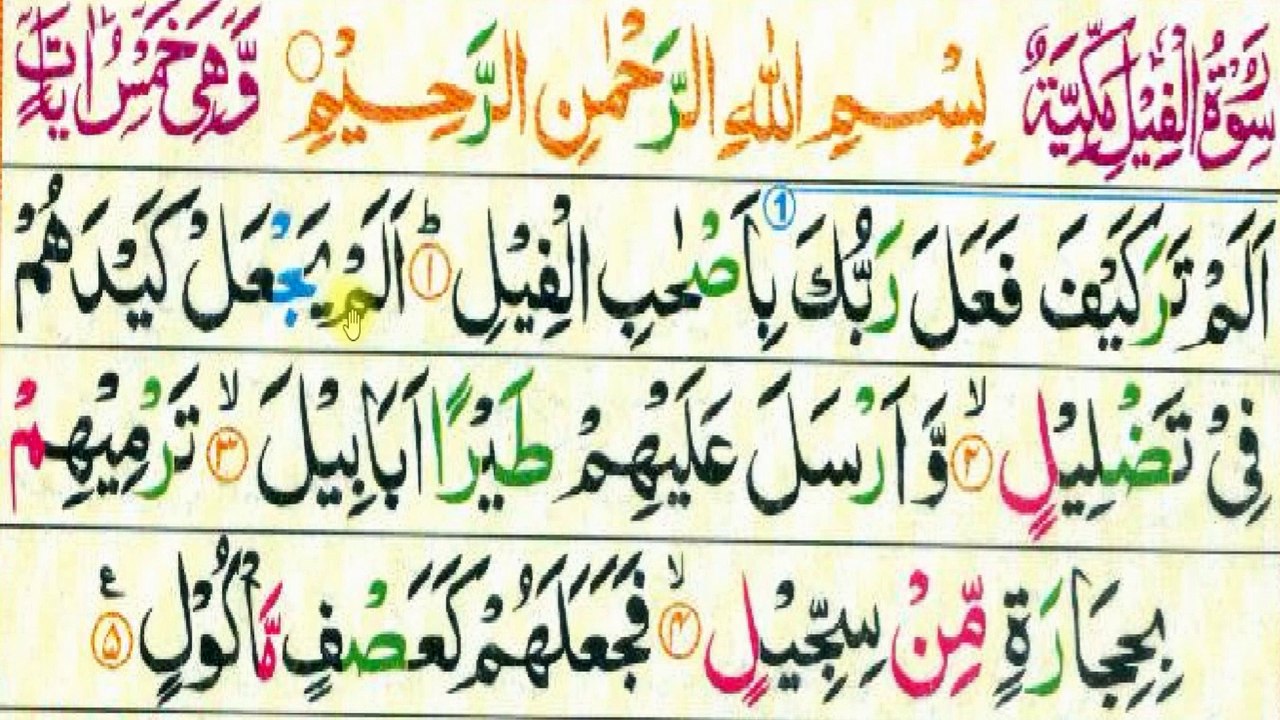 سُوْرَةُ الْفِيْلِ مَكِّيَّةٌ بِسْمِ اللهِ الرَّحْمٰنِ الرَّحِيْمِ ○ وَّهِىَ خَمْسُ اٰيَاتٍ
اَلَمْ تَرَ كَيْفَ فَعَلَ رَبُّكَ بِاَصْحٰبِ الْفِيْلِ ؕ ① ١ اَلَمْ يَجْعَلْ كَيْدَهُمْ
فِىْ تَضْلِيْلٍ ۙ ٢ وَّ اَرْسَلَ عَلَيْهِمْ طَيْرًا اَبَابِيْلَ ۙ ٣ تَرْمِيْهِمْ
بِحِجَارَةٍ مِّنْ سِجِّيْلٍ ۙ ٤ فَجَعَلَهُمْ كَعَصْفٍ مَّاْكُوْلٍ ٥ ع